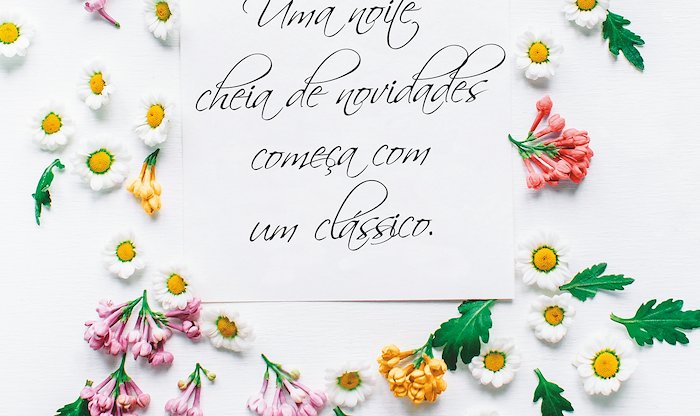 Uma noite
cheia de novidades
começa com
um clássico.